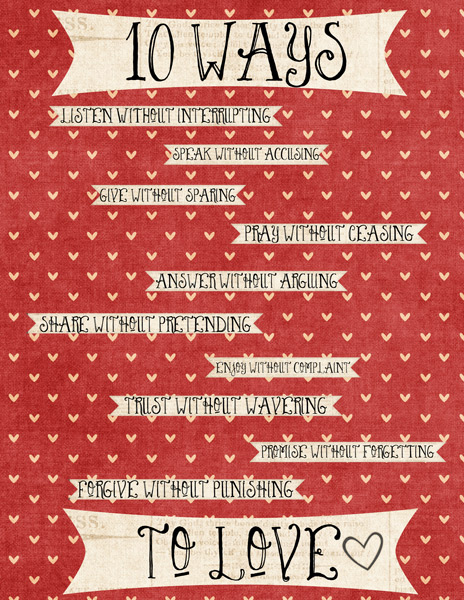 10 WAYS
LISTEN WITHOUT INTERRUPTING
SPEAK WITHOUT ACCUSING
GIVE WITHOUT SPARING
PRAY WITHOUT CEASING
ANSWER WITHOUT ARGUING
SHARE WITHOUT PRETENDING
ENJOY WITHOUT COMPLAINT
TRUST WITHOUT WAVERING
PROMISE WITHOUT FORGETTING
FORGIVE WITHOUT PUNISHING
TO LOVE